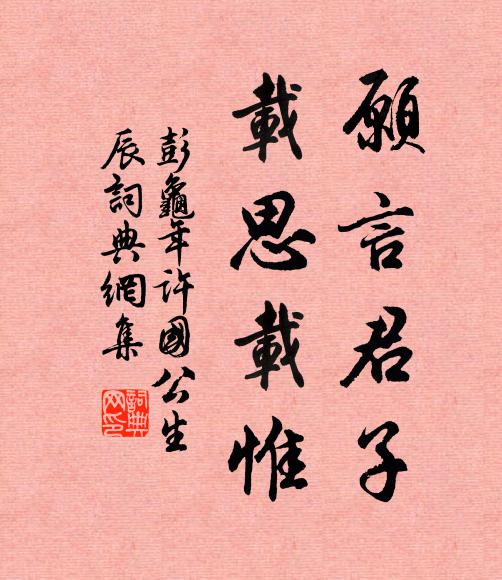 願言君子
載思載惟
彭龜年許國公生
辰詞典網集
詞典
网印